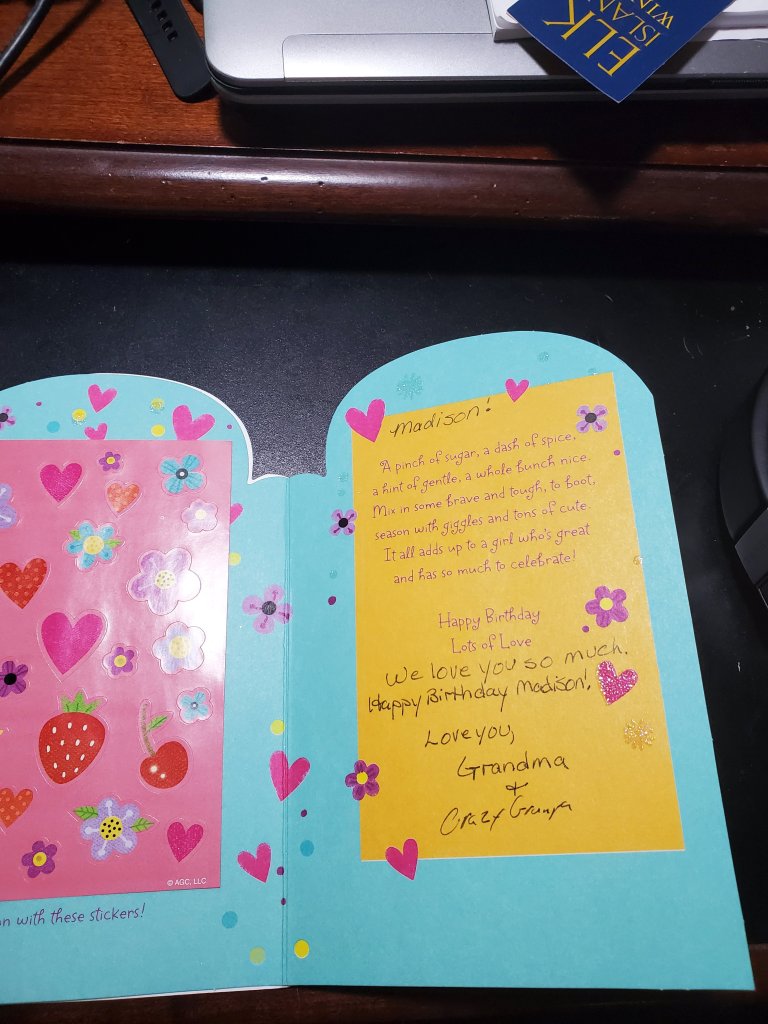 ELK
ISLAN
WIN
Madison!
A pinch of sugar, a dash of spice,
a hint of gentle, a whole bunch nice.
Mix in some brave and tough, to boot,
season with giggles and tons of cute.
It all adds up to a girl who's great
and has so much to celebrate!
Happy Birthday
Lots of Love
We love you so much.
Happy Birthday Madison!
Love you,
Grandma
+
Crazy Grampa
© AGC, LLC
n with these stickers!